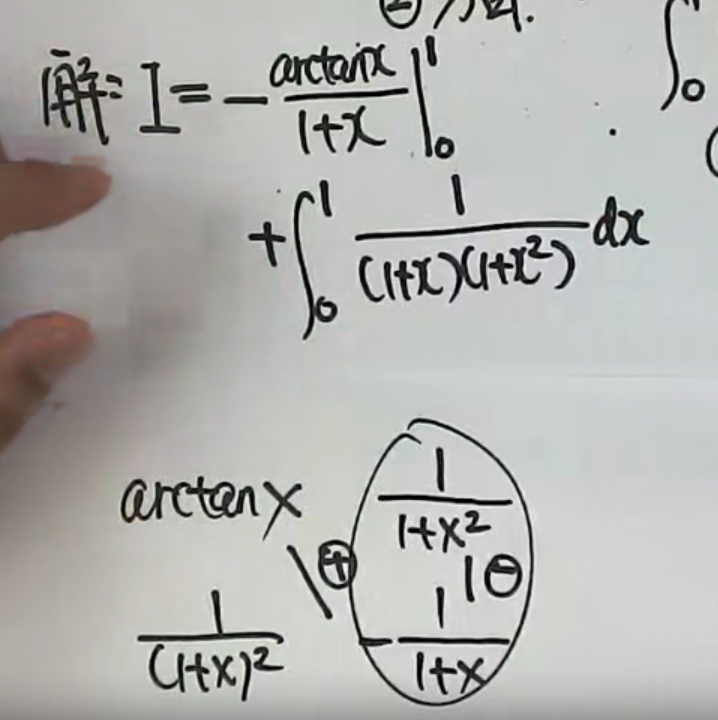 解: I = - \frac{arctanx}{1+x} |_0^1
+ \int_0^1 \frac{1}{(1+x)(1+x^2)} dx
arctanx \frac{1}{1+x^2}
⊕ | ⊖
\frac{1}{(1+x)^2} - \frac{1}{1+x}